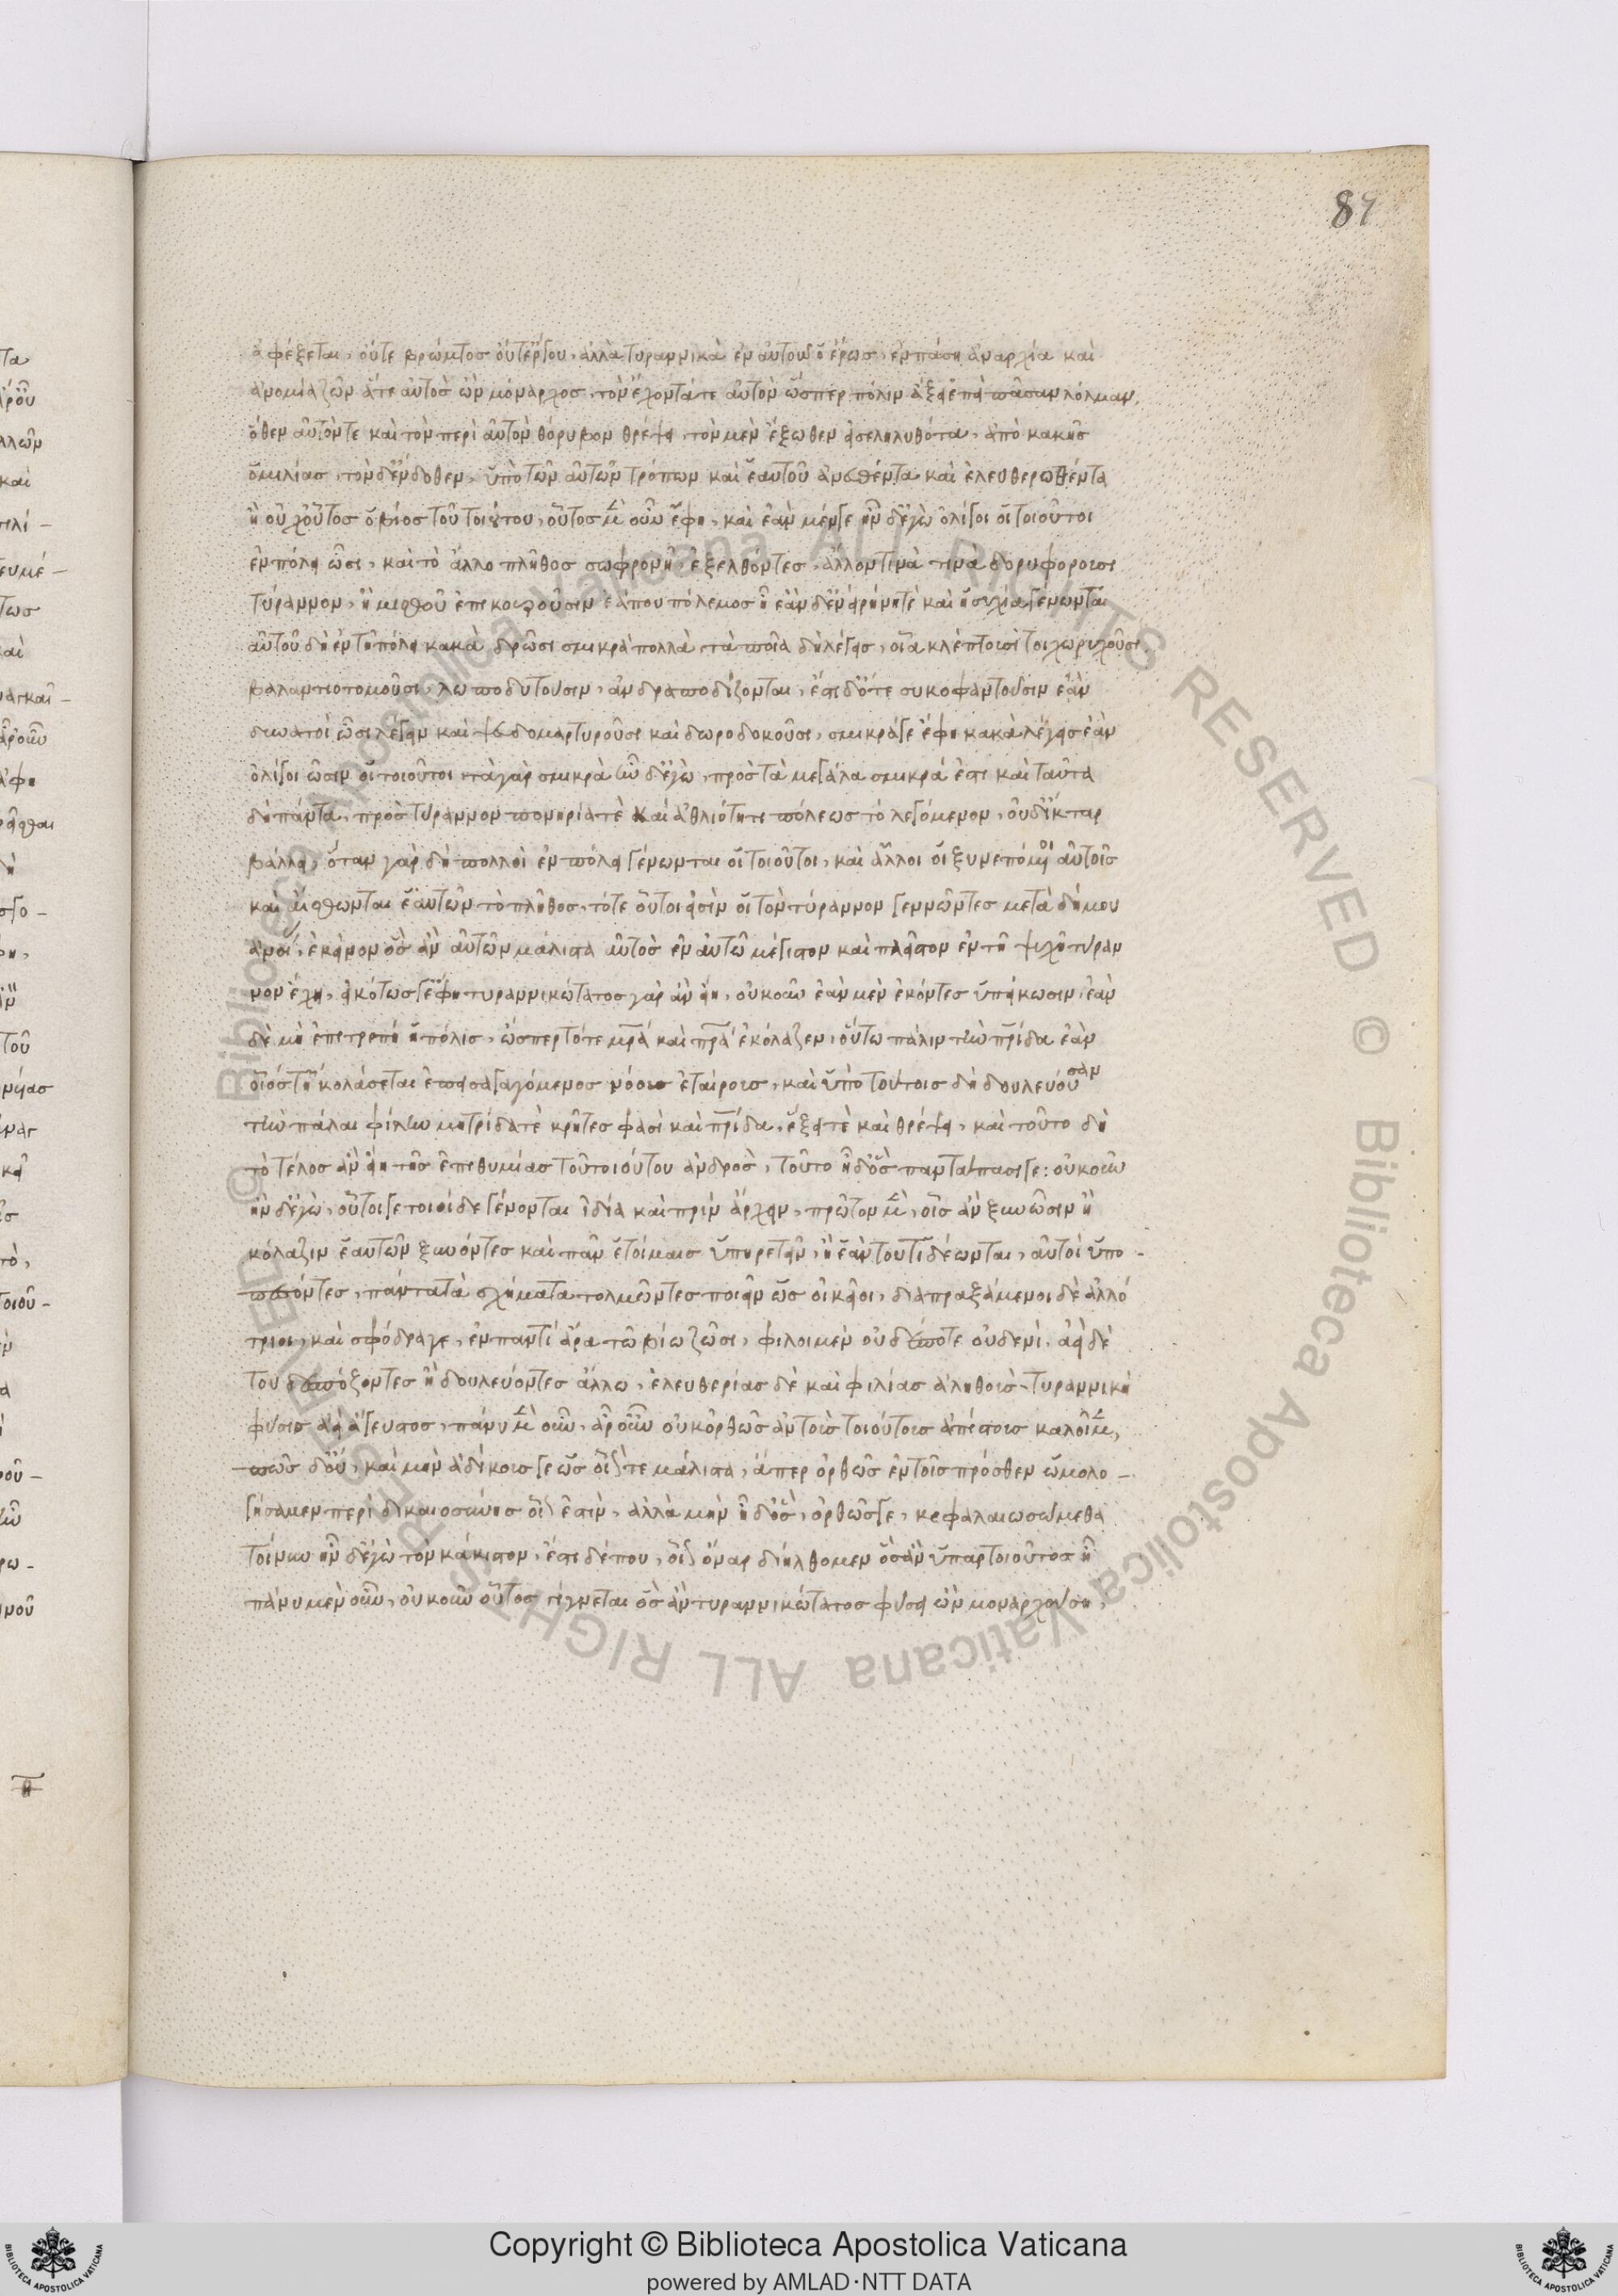 89
ἀφέξεται, οὔτε βρώματος οὔτ' ἔργου, ἀλλὰ τυραννικὰ ἐν αὐτοῦ ὁ ἔρως, ἐν πάση ἀναρχία καὶ
ἀνομία ζῶν ἅτε αὐτὸς ὢν μόναρχος, τὸν ἔχοντά τε αὐτὸν ὥσπερ πόλιν ἄξει ἐπὶ πᾶσαν τόλμαν,
ὅθεν αὐτόν τε καὶ τὸν περὶ αὐτὸν θόρυβον θρέψει, τὸν μὲν ἔξωθεν εἰσεληλυθότα, ἀπὸ κακῆς
ὁμιλίας, τὸν δ' ἔνδοθεν, ὑπὸ τῶν αὐτῶν τρόπων καὶ ἑαυτοῦ ἀνεθέντα καὶ ἐλευθερωθέντα
ἢ οὐχ οὗτος ὁ βίος τοῦ τοιούτου, οὗτος μὲν οὖν ἔφη, καὶ ἐὰν μέν γε ἦν δ' ἐγὼ ὀλίγοι οἱ τοιοῦτοι
ἐν πόλει ὦσι, καὶ τὸ ἄλλο πλῆθος σωφρονῆ, ἐξελθόντες, ἄλλον τινὰ τινὰ δορυφοροῦσι
τύραννον, ἢ μισθοῦ ἐπικουροῦσιν ἐάπου πόλεμος ἦ ἐὰν δ' ἐν εἰρήνη τὲ καὶ ἡσυχία γένωνται
αὐτοῦ δὴ ἐν τῆ πόλει κακὰ δρῶσι σμικρὰ πολλὰ, τὰ ποῖα δὴ λέγεις, οἷα κλέπτουσι τοιχωρυχοῦσι,
βαλαντιοτομοῦσι, λωποδυτοῦσιν, ἀνδραποδίζονται, ἔστι δ' ὅτε συκοφαντοῦσιν ἐὰν
δυνατοὶ ὦσι λέγειν καὶ ψευδομαρτυροῦσι καὶ δωροδοκοῦσι, σμικρά γε ἔφη κακὰ λέγεις ἐὰν
ὀλίγοι ὦσιν οἱ τοιοῦτοι τὰ γὰρ σμικρὰ ἦν δ' ἐγὼ, πρὸς τὰ μεγάλα σμικρά ἐστι καὶ ταῦτα
δὴ πάντα, πρὸς τύραννον πονηρία τὲ καὶ ἀθλιότητι πόλεως τὸ λεγόμενον, οὐδ' ἴκταρ
βάλλει, ὅταν γὰρ δὴ πολλοὶ ἐν πόλει γένωνται οἱ τοιοῦτοι, καὶ ἄλλοι οἱ ξυνεπόμενοι αὐτοῖς
καὶ αἴσθωνται ἑαυτῶν τὸ πλῆθος, τότε οὗτοι εἰσὶν οἱ τὸν τύραννον γεννῶντες μετὰ δήμου
ἀνοί, ἐκεῖνον ὃς ἂν αὐτῶν μάλιστα αὐτὸς ἐν αὑτῶ μέγιστον καὶ πλεῖστον ἐν τῆ ψυχῆ τύραν
νον ἔχη, εἰκότως γ' ἔφη τυραννικώτατος γὰρ ἂν εἴη, οὐκοῦν ἐὰν μὲν ἑκόντες ὑπείκωσιν, ἐὰν
δὲ μὴ ἐπιτρεπῆ ἡ πόλις, ὥσπερ τότε μρᾱ́ καὶ πρᾱ́ ἐκόλαζεν, οὕτω πάλιν τὴν πρίδα ἐὰν
οἷός τ' ἦ κολάσεται ἐπεισαγαγόμενος νέους ἑταίρους, καὶ ὑπὸ τούτοις δὴ δουλεύουσαν
τὴν πάλαι φίλην μητρίδα τὲ κρῆτες φασὶ καὶ πρίδα, ἕξει τὲ καὶ θρέψει, καὶ τοῦτο δὴ
τὸ τέλος ἂν εἴη τῆς ἐπιθυμίας τοῦ τοιούτου ἀνδρὸς, τοῦτο ἦ δ' ὃς παντάπασι γε: οὐκοῦν
ἦν δ' ἐγὼ, οὗτοι γε τοιοίδε γίνονται ἰδία καὶ πρὶν ἄρχειν, πρῶτον μὲν, οἷς ἂν ξυνῶσιν ἢ
κόλαξιν ἑαυτῶν ξυνόντες καὶ πᾶν ἑτοίμοις ὑπηρετεῖν, ἢ ἐάν του τὶ δέωνται, αὐτοὶ ὑπο-
πεσόντες, πάντα τὰ σχήματα τολμῶντες ποιεῖν ὡς οἰκεῖοι, διαπραξάμενοι δὲ ἀλλό
τριοι, καὶ σφόδρα γε, ἐν παντὶ ἄρα τῶ βίω ζῶσι, φίλοι μὲν οὐδέποτε οὐδενί, ἀεὶ δέ
του δεσπόζοντες ἢ δουλεύοντες ἄλλω, ἐλευθερίας δὲ καὶ φιλίας ἀληθοῦς, τυραννικὴ
φύσις ἀεὶ ἄγευστος, πάνυ μὲν οὖν, ἆρ' οὖν οὐκ ὀρθῶς ἂν τοὺς τοιούτους ἀπίστους καλοῖμεν,
πῶς δ' οὔ, καὶ μὴν ἀδίκους γε ὡς οἷόν τε μάλιστα, εἴπερ ὀρθῶς ἐν τοῖς πρόσθεν ὡμολο-
γήσαμεν περὶ δικαιοσύνης οἷόν ἐστιν, ἀλλὰ μὴν ἦ δ' ὃς, ὀρθῶς γε, κεφαλαιωσώμεθα
τοίνυν ἦν δ' ἐγὼ τὸν κάκιστον, ἔστι δέ που, οἷον ὄναρ διήλθομεν ὃς ἂν ὕπαρ τοιοῦτος ἦ
πάνυ μὲν οὖν, οὐκοῦν οὗτος γίγνεται ὃς ἂν τυραννικώτατος φύσει ὢν μοναρχήση,
Copyright © Biblioteca Apostolica Vaticana
powered by AMLAD·NTT DATA